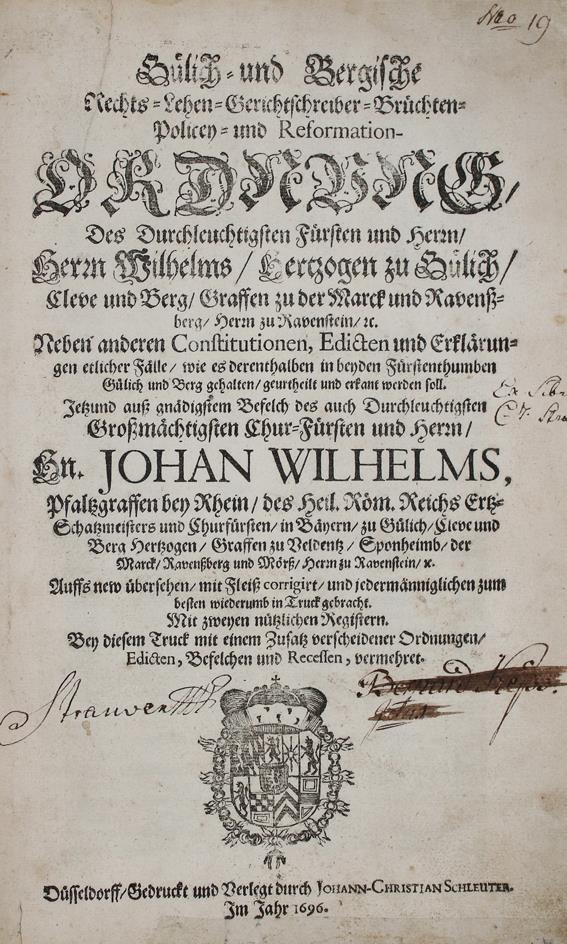 No 19
Gülich- und Bergische
Rechts-Lehen-Gerichtschreiber-Brüchten-
Policey- und Reformation-
ORDNUNG/
Des Durchleuchtigsten Fürsten und Herrn/
Herrn Wilhelms/ Hertzogen zu Gülich/
Cleve und Berg/ Graffen zu der Marck und Ravenß-
berg/ Herrn zu Ravenstein/ ꝛc.
Neben anderen Constitutionen, Edicten und Erklärun-
gen etlicher Fälle/ wie es derenthalben in beyden Fürstenthumben
Gülich und Berg gehalten/ geurtheilt und erkant werden soll.
Jetzund auß gnädigstem Befelch des auch Durchleuchtigsten
Großmächtigsten Chur-Fürsten und Herrn/
Hn. JOHAN WILHELMS,
Pfaltzgraffen bey Rhein/ des Heil. Röm. Reichs Ertz-
Schatzmeisters und Churfürsten/ in Bäyern/ zu Gülich/ Cleve und
Berg Hertzogen/ Graffen zu Veldentz/ Sponheimb/ der
Marck/ Ravenßberg und Mörß/ Herrn zu Ravenstein/ ꝛc.
Auffs new übersehen/ mit Fleiß corrigirt/ und jedermänniglichen zum
besten wiederumb in Truck gebracht.
Mit zweyen nützlichen Registern.
Bey diesem Truck mit einem Zusatz verscheidener Ordnungen/
Edicten, Befelchen und Recessen, vermehret.
Strauven
Düsseldorff/ Gedruckt und Verlegt durch JOHANN-CHRISTIAN SCHLEUTER.
Im Jahr 1696.